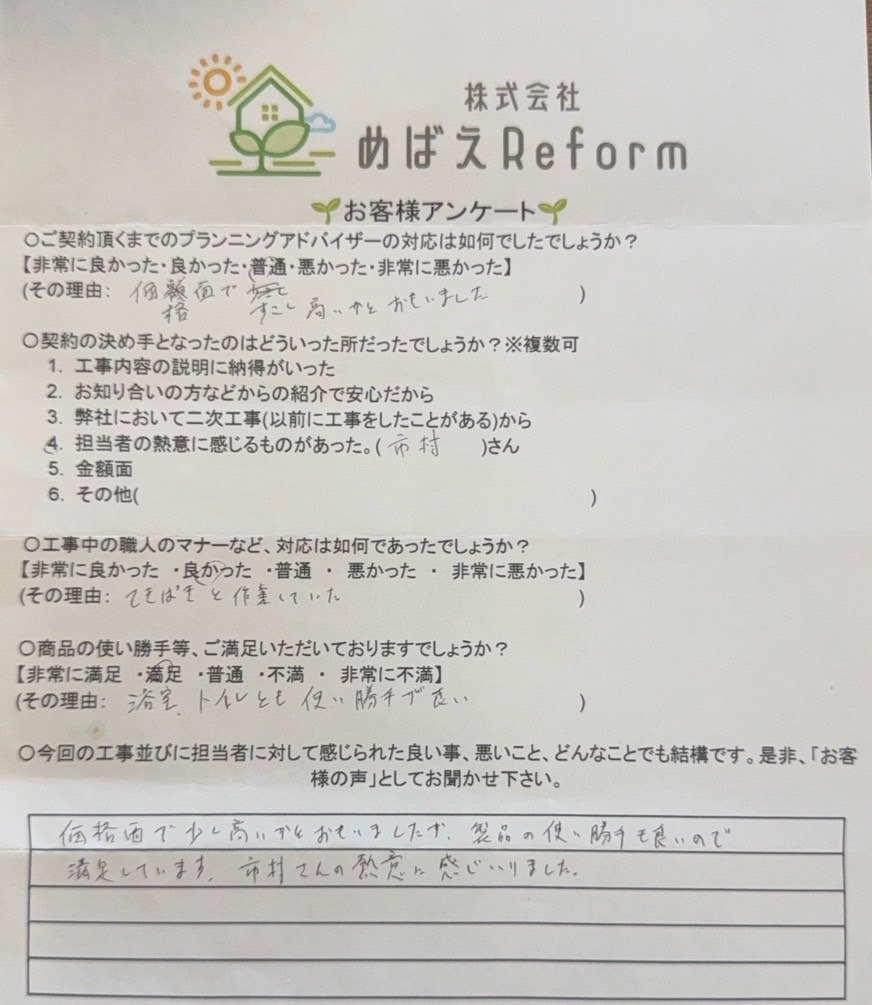 株式会社
めばえReform
お客様アンケート
○ご契約頂くまでのプランニングアドバイザーの対応は如何でしたでしょうか？
【非常に良かった・良かった・普通・悪かった・非常に悪かった】
(その理由： 価格面で すこし高いかとおもいました )
○契約の決め手となったのはどういった所だったでしょうか？※複数可
1. 工事内容の説明に納得がいった
2. お知り合いの方などからの紹介で安心だから
3. 弊社において二次工事(以前に工事をしたことがある)から
4. 担当者の熱意に感じるものがあった。( 市村 )さん
5. 金額面
6. その他( )
○工事中の職人のマナーなど、対応は如何であったでしょうか？
【非常に良かった ・良かった ・普通 ・ 悪かった ・ 非常に悪かった】
(その理由： てきぱきと作業していた )
○商品の使い勝手等、ご満足いただいておりますでしょうか？
【非常に満足 ・満足 ・普通 ・不満 ・ 非常に不満】
(その理由： 浴室、トイレとも使い勝手が良い )
○今回の工事並びに担当者に対して感じられた良い事、悪いこと、どんなことでも結構です。是非、「お客
様の声」としてお聞かせ下さい。
価格面で少し高いかとおもいましたが、製品の使い勝手も良いので
満足しています。市村さんの熱意に感じいりました。